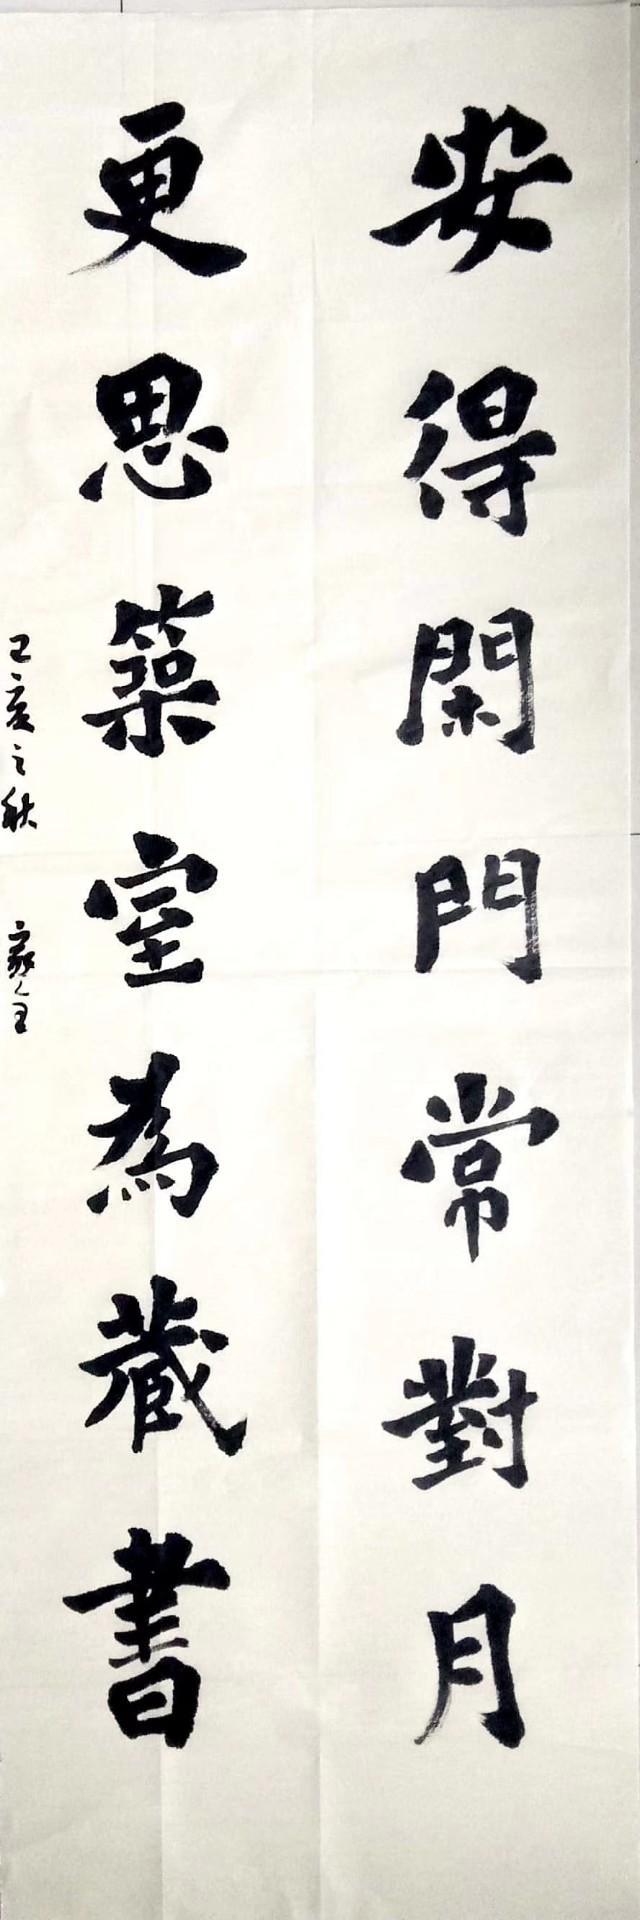 安得閑門常對月
更思築室為藏書
己亥之秋 家全